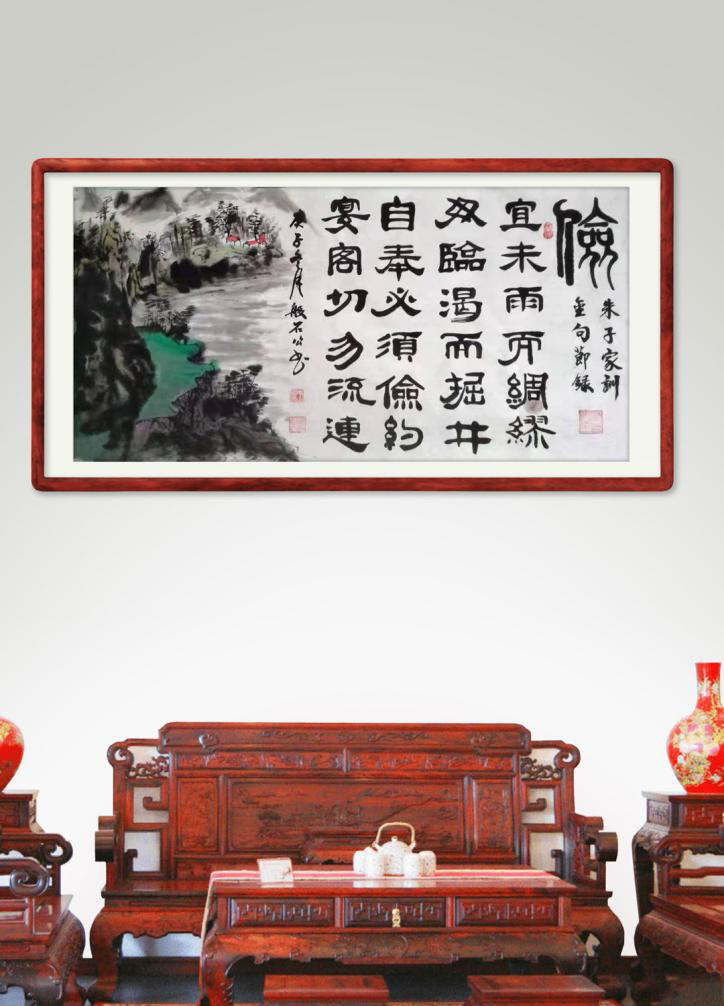 儉
朱子家訓
金句節錄
宜未雨而綢繆
毋臨渴而掘井
自奉必須儉約
宴客切勿流連
庚子冬月般石公书